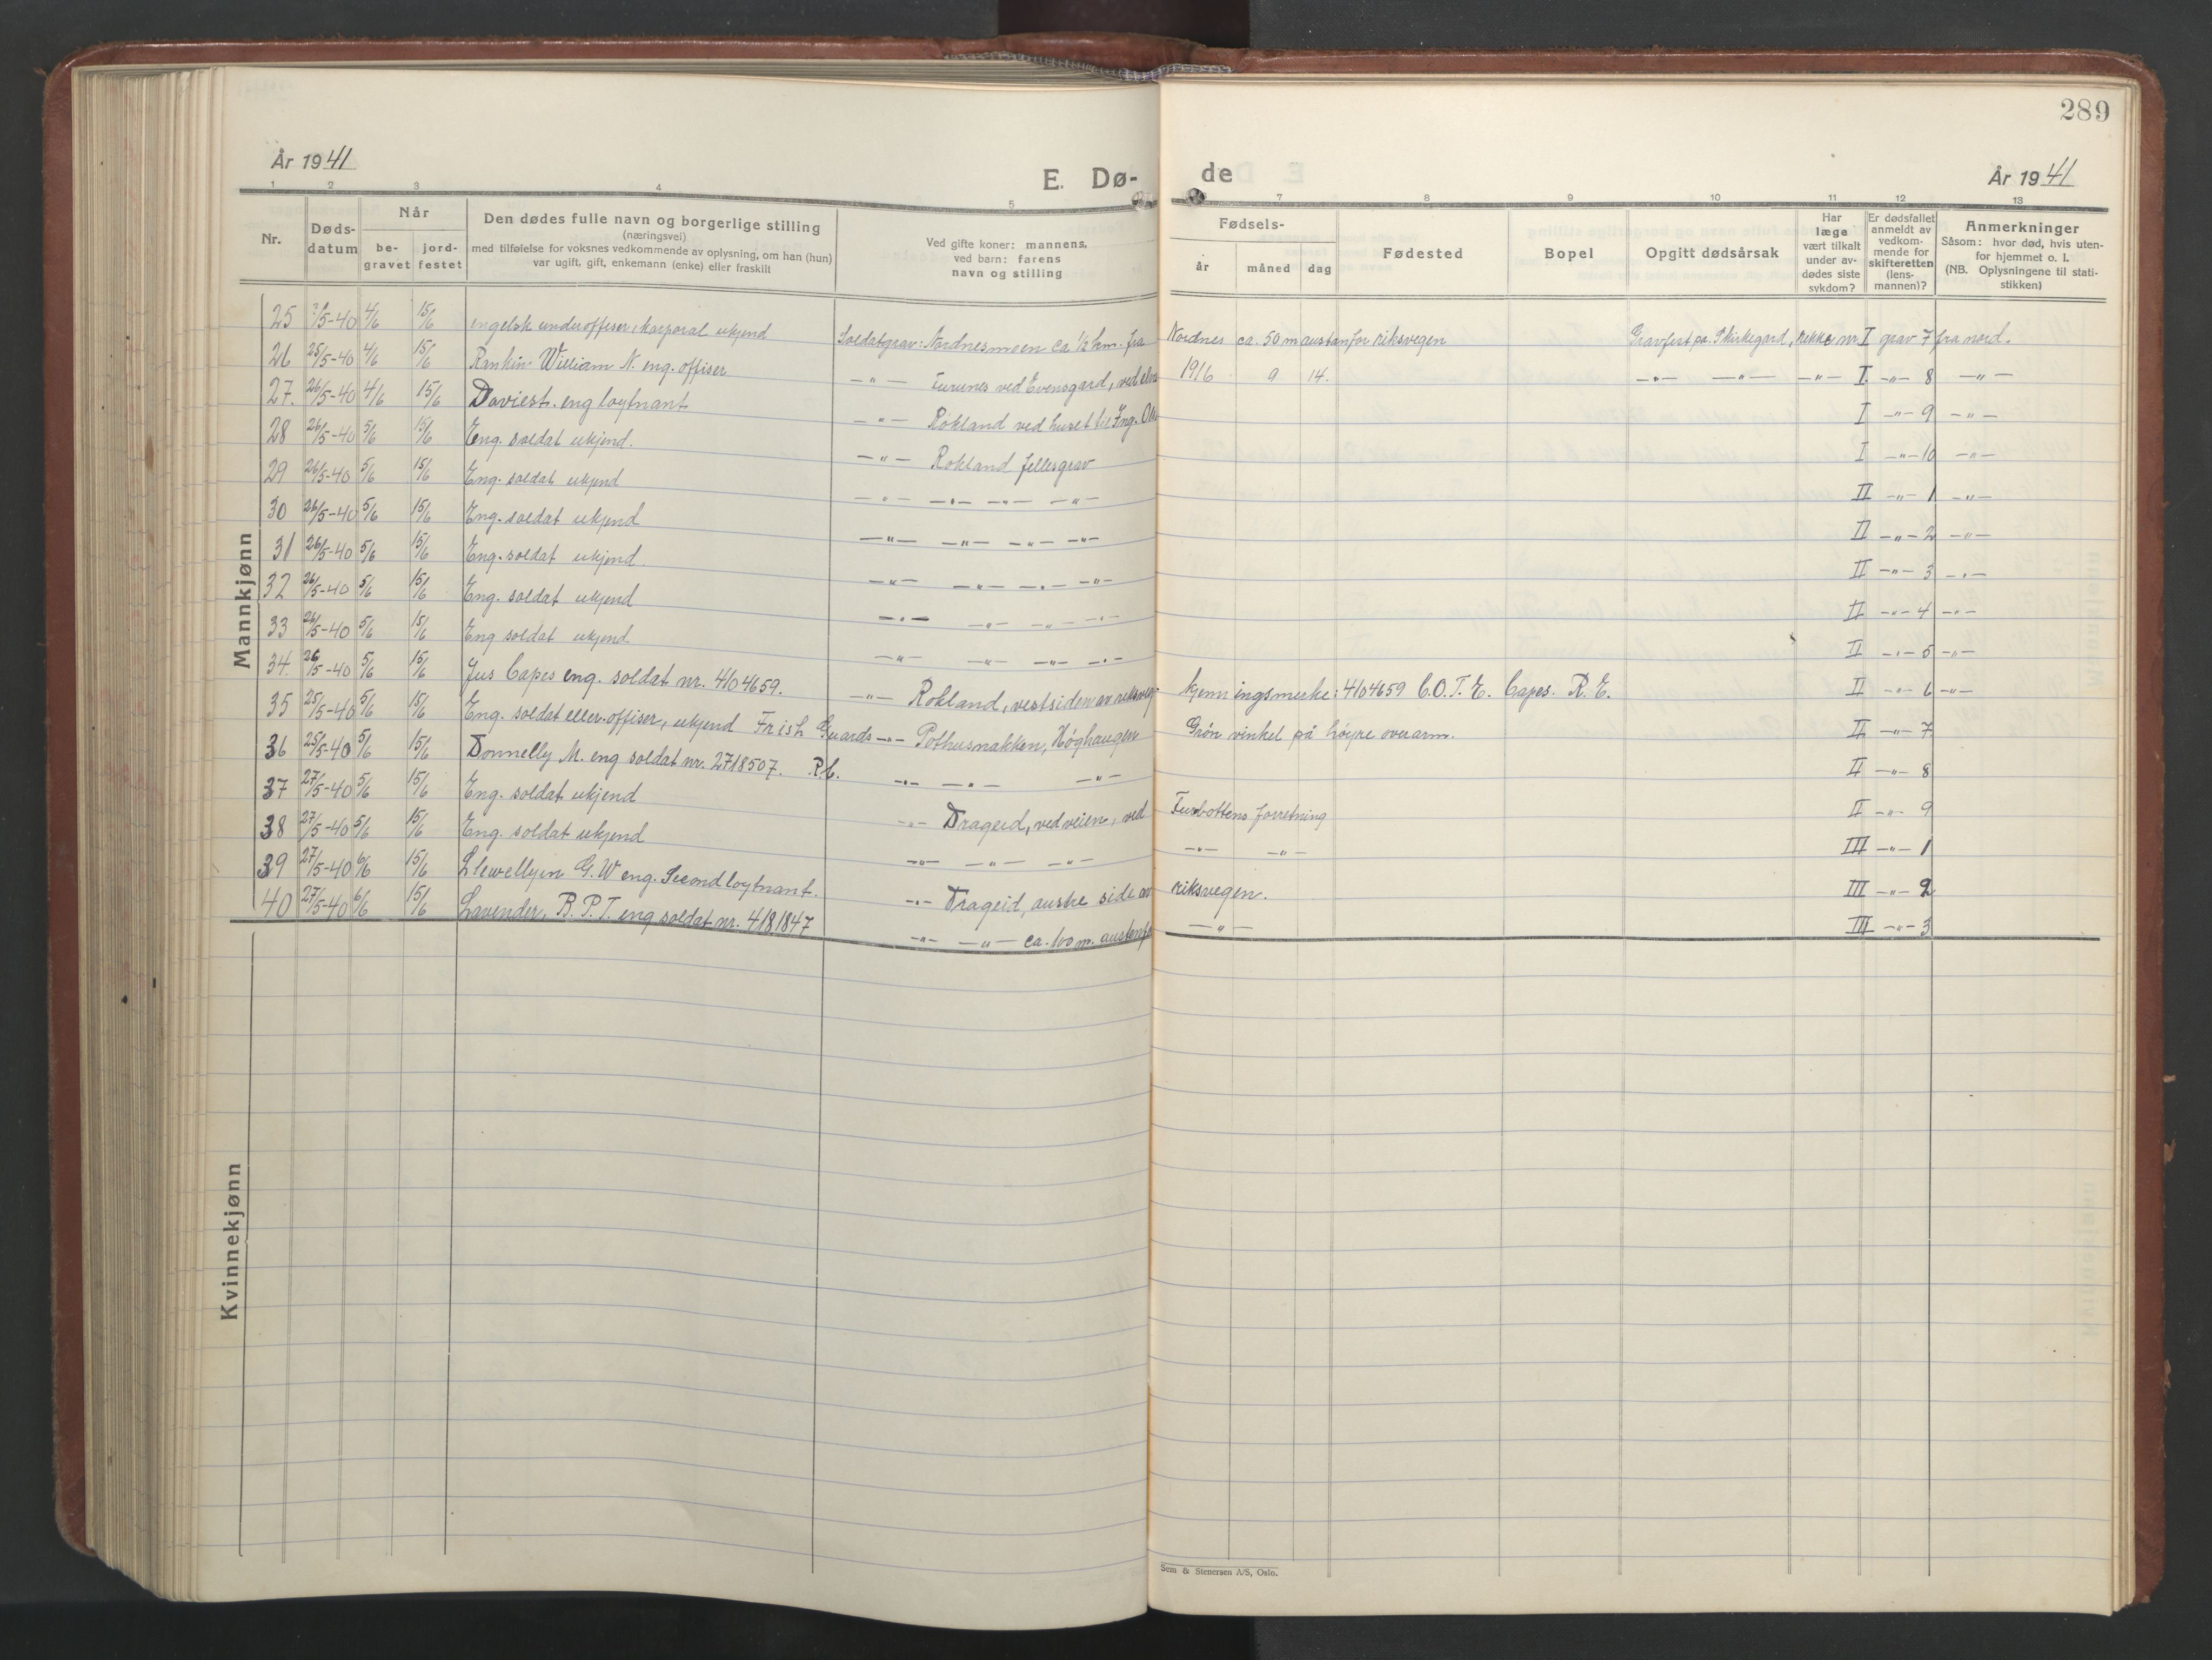 289
År 1941
E. Dø-
de
År 1941
1 2 3 4 5 7 8 9 10 11 12 13
Nr.
Døds-
datum
Når
be-
gravet
jord-
festet
Den dødes fulle navn og borgerlige stilling
(næringsvei)
med tilføielse for voksnes vedkommende av oplysning, om han (hun)
var ugift, gift, enkemann (enke) eller fraskilt
Ved gifte koner: mannens,
ved barn: farens
navn og stilling
Fødsels-
år måned dag
Fødested
Bopel
Opgitt dødsårsak
Har
læge
vært tilkalt
under av-
dødes siste
sykdom?
Er dødsfallet
anmeldt av
vedkom-
mende for
skifteretten
(lens-
mannen)?
Anmerkninger
Såsom: hvor død, hvis uten-
for hjemmet o. l.
(NB. Oplysningene til stati-
stikken)
Mannkjønn
25 /5-40 4/6 15/6 engelsk underoffiser, korporal ukjend Soldatgrav: Nordnesmoen ca ½ km. fra Nordnes ca. 50 m austanfor riksvegen kirkegard, rekke nr I grav 7 fra nord.
26 25/5-40 4/6 15/6 Rankin William N. eng. offiser —"— Furunes ved Evensgard, ved elva 1916 9 14. —"— —"— —"— I. —"— 8 —"—
27. 26/5-40 4/6 15/6 Daviest. eng loytnant —"— Rokland ved huset til Ing. I —"— 9 —"—
28 26/5-40 5/6 15/6 Eng. soldat ukjend. —"— Rokland fellesgrav I —"— 10 —"—
29 26/5-40 5/6 15/6 Eng. soldat ukjend —"— —"— —"— —"— II —"— 1 —"—
30 26/5-40 5/6 15/6 Eng. soldat ukjend —"— —"— —"— —"— II —"— 2 —"—
31 26/5-40 5/6 15/6 Eng. soldat ukjend. —"— —"— —"— —"— II —"— 3 —"—
32 26/5-40 5/6 15/6 Eng. soldat ukjend —"— —"— —"— —"— II —"— 4 —"—
33 26/5-40 5/6 15/6 Eng soldat ukjend —"— —"— —"— —"— II —"— 5 —"—
34. 26/5-40 5/6 15/6 Jus Capes eng. soldat nr. 4104659. —"— Rokland, vestsiden av riksveg. kjenningsmerke: 4104659 C.O.T.E. Capes. R.E. II —"— 6 —"—
35 25/5-40 5/6 15/6 Eng. soldat eller offiser, ukjend Frish Guards —"— Pothusnakken, Høghaugen Grøn vinkel på høyre overarm. II —"— 7
36 25/5-40 5/6 15/6 Donnelly M. eng soldat nr. 2718507. R.C. —"— —"— —"— II —"— 8
37 27/5-40 5/6 15/6 Eng. soldat ukjend —"— Drageid, ved veien, ved forretning II —"— 9
38 27/5-40 5/6 15/6 Eng. soldat ukjend —"— —"— —"— —"— —"— III —"— 1
39 27/5-40 6/6 15/6 Llewellyin G. W eng. Secondloytnant. —"— Drageid, austre side av riksvegen. III —"— 2
40 27/5-40 6/6 15/6 Lavender, B. P. T. eng soldat nr. 4181847 —"— —"— ca. 100 m. austenfor —"— III —"— 3
Kvinnekjønn
Sem & Stenersen A/S, Oslo.